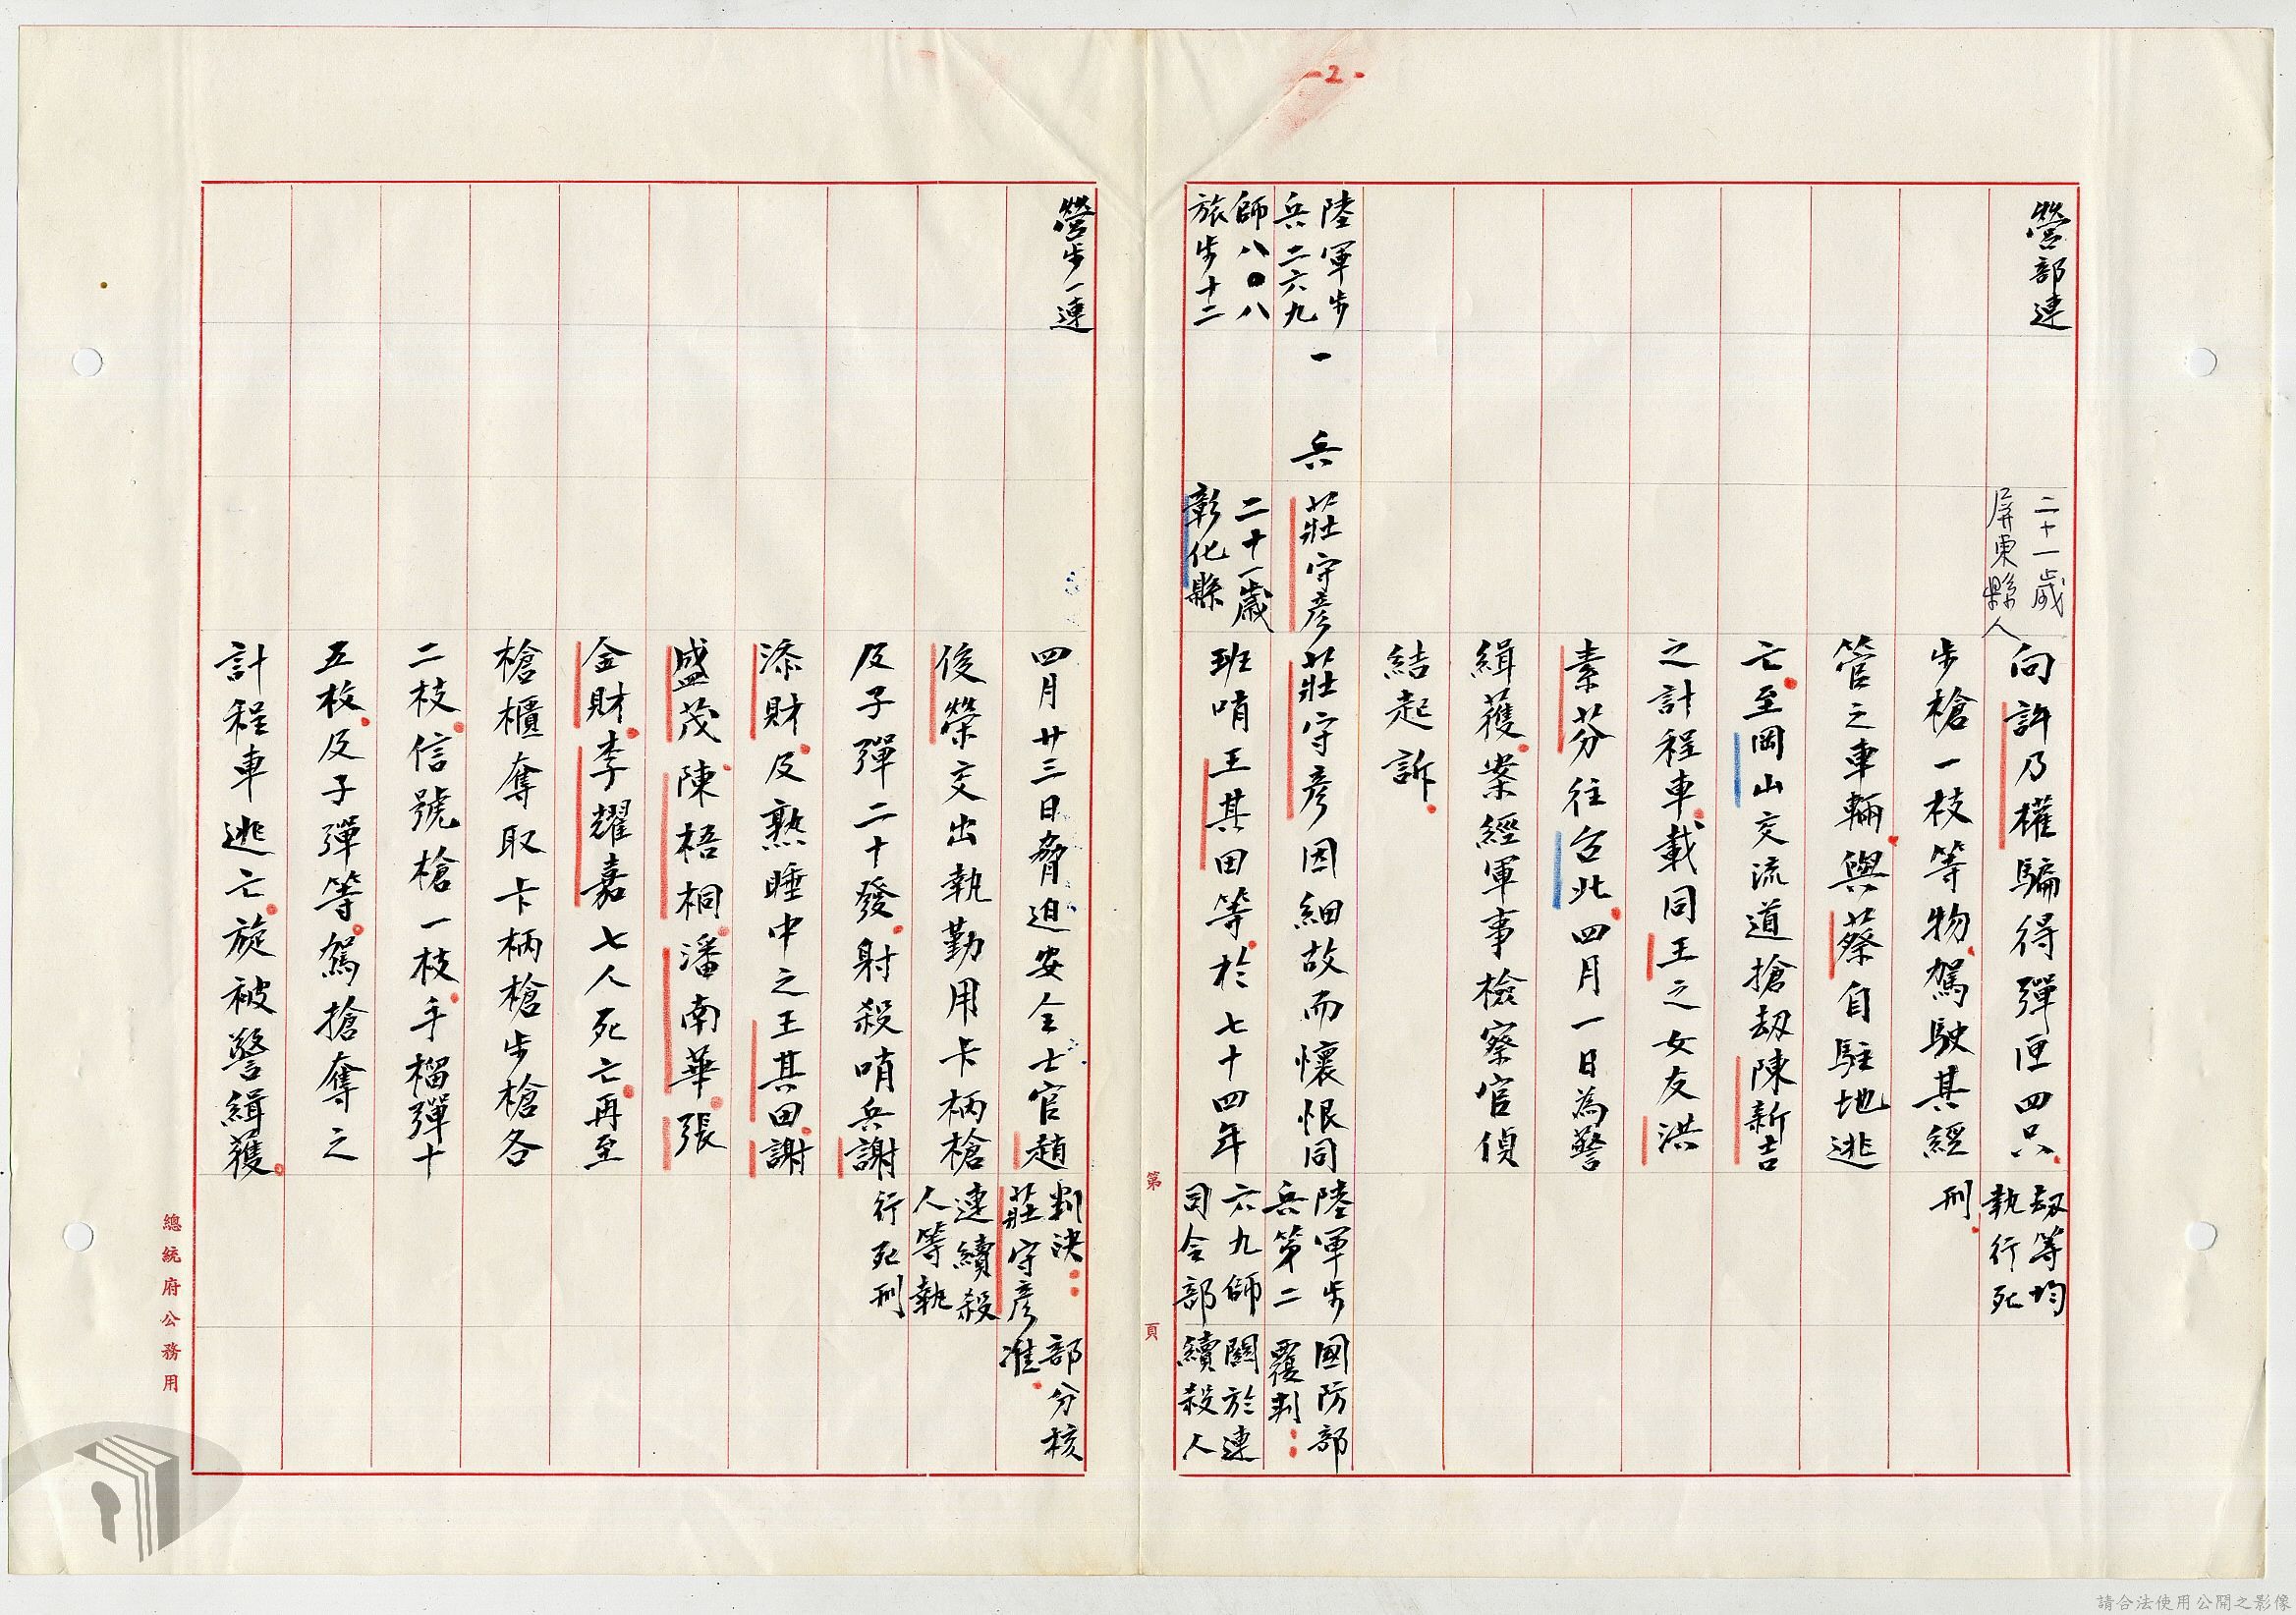 -2-
營部連
二十一歲
屏東縣人
向許乃權騙得彈匣四只、
步槍一枝等物、駕駛其經
管之車輛、與蔡自駐地逃
亡、至岡山交流道搶劫陳新吉
之計程車、載同王之女友洪
素芬往台北、四月一日為警
緝獲、案經軍事檢察官偵
結起訴。
劫等均
執行死
刑。
陸軍步
兵二六九
師八〇八
旅步十二
一兵
莊守彥
二十一歲
彰化縣
莊守彥因細故而懷恨同
班哨王其田等、於七十四年
陸軍步
兵第二
六九師
司令部
國防部
覆判：
關於連
續殺人
營步一連
四月廿三日脅迫安全士官趙
俊榮交出執勤用卡柄槍
及子彈二十發、射殺哨兵謝
添財、及熟睡中之王其田、謝
盛茂、陳梧桐、潘南華、張
金財、李耀嘉七人死亡、再至
槍櫃奪取卡柄槍步槍各
二枝、信號槍一枝、手榴彈十
五枚、及子彈等、駕搶奪之
計程車逃亡、旋被警緝獲。
判決：
莊守彥
連續殺
人等執
行死刑
部分核
准。
第 頁
總統府公務用
請合法使用公開之影像